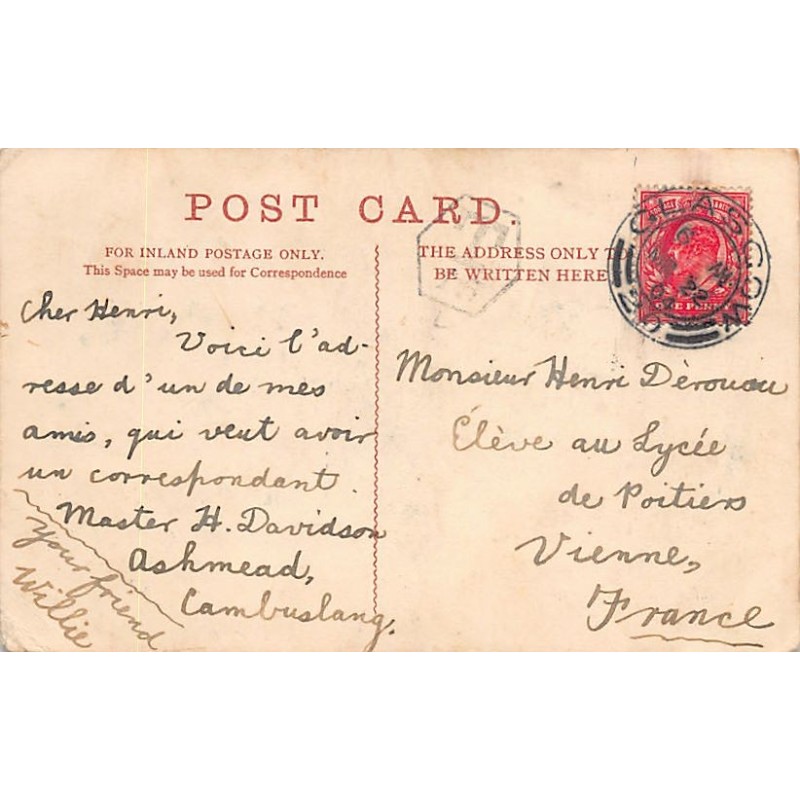 POST CARD.
FOR INLAND POSTAGE ONLY.
This Space may be used for Correspondence
THE ADDRESS ONLY TO
BE WRITTEN HERE
GLASGOW
ONE PENNY
Cher Henri,
Voici l'ad-
resse d'un de mes
amis, qui veut avoir
un correspondant.
Master H. Davidson
Ashmead,
Cambuslang.
your friend
Willie
Monsieur Henri Dérouau
Élève au Lycée
de Poitiers
Vienne,
France